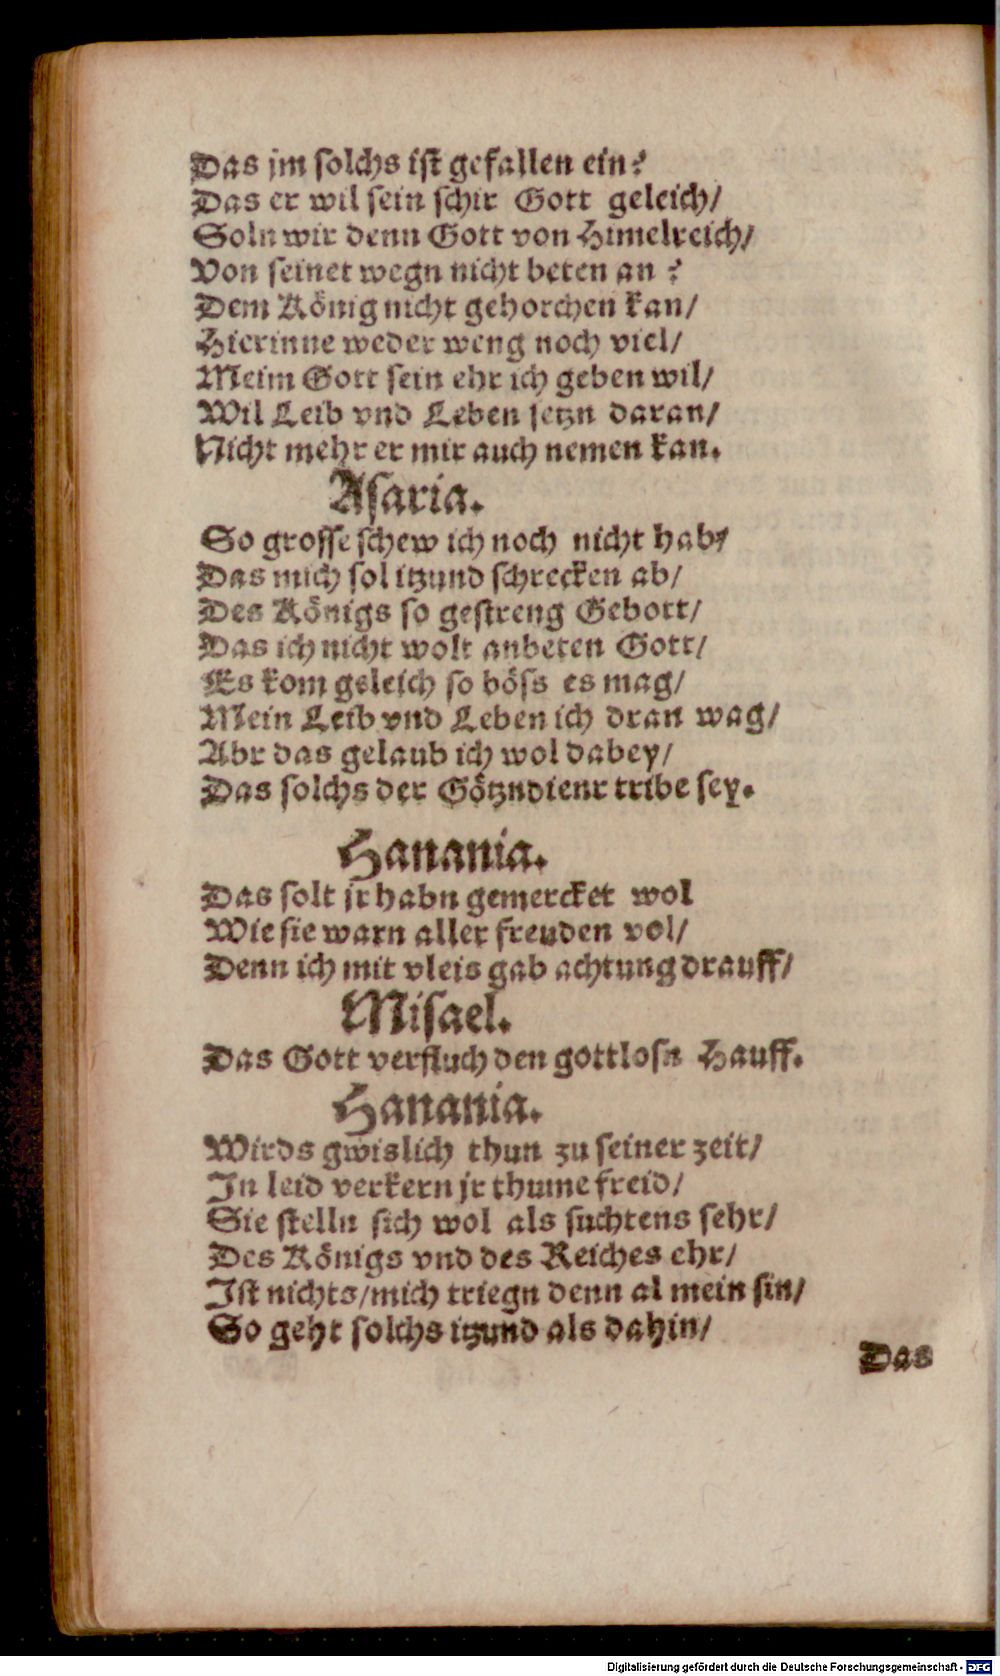 Das jm solchs ist gefallen ein?
Das er wil sein schir Gott geleich/
Soln wir denn Gott von Himelreich/
Von seinet wegn nicht beten an?
Dem König nicht gehorchen kan/
Hierinne weder weng noch viel/
Meim Gott sein ehr ich geben wil/
Wil Leib vnd Leben setzn daran/
Nicht mehr er mir auch nemen kan.
Asaria.
So grosse schew ich noch nicht hab/
Das mich sol itzund schrecken ab/
Des Königs so gestreng Gebott/
Das ich nicht wolt anbeten Gott/
Es kom geleich so böss es mag/
Mein Leib vnd Leben ich dran wag/
Abr das gelaub ich wol dabey/
Das solchs der Götzndienr tribe sey.
Hanania.
Das solt jr habn gemercket wol
Wie sie warn aller freuden vol/
Denn ich mit vleis gab achtung drauff/
Misael.
Das Gott verfluch den gottlosn Hauff.
Hanania.
Wirds gwislich thun zu seiner zeit/
In leid verkern jr thume freid/
Sie stelln sich wol als suchtens sehr/
Des Königs vnd des Reiches ehr/
Ist nichts/mich triegn denn al mein sin/
So geht solchs itzund als dahin/
Das
Digitalisierung gefördert durch die Deutsche Forschungsgemeinschaft - DFG